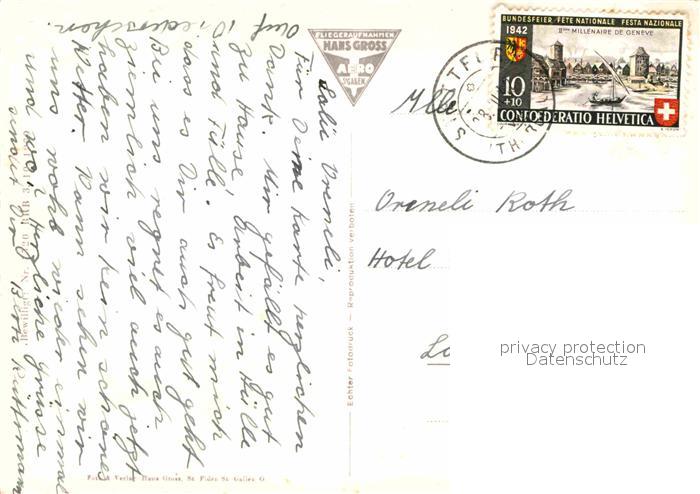 FLIEGERAUFNAHMEN
HANS GROSS
AERO
ST. GALLEN
Salü Vreneli,
Für Deine Karte herzlichen
Dank. Mir gefällt es gut
zu Hause, Arbeit in Hülle
und Fülle. Es freut mich
dass es Dir auch gut geht
Bei uns regnet es auch
ziemlich viel auch jetzt
haben wir kein schönes
Wann sehen wir
uns wohl wieder einmal
und wo? Herzliche Grüsse
Auf Wiedersehen.
Echter Fotodruck — Reproduktion verboten
Foto & Verlag Hans Gross, St. Fiden St. Gallen O
BUNDESFEIER · FETE NATIONALE · FESTA NAZIONALE
1942
IIme MILLENAIRE DE GENÈVE
10
+10
CONFOEDERATIO HELVETICA
Mlle
Vreneli Roth
Hotel
privacy protection
Datenschutz